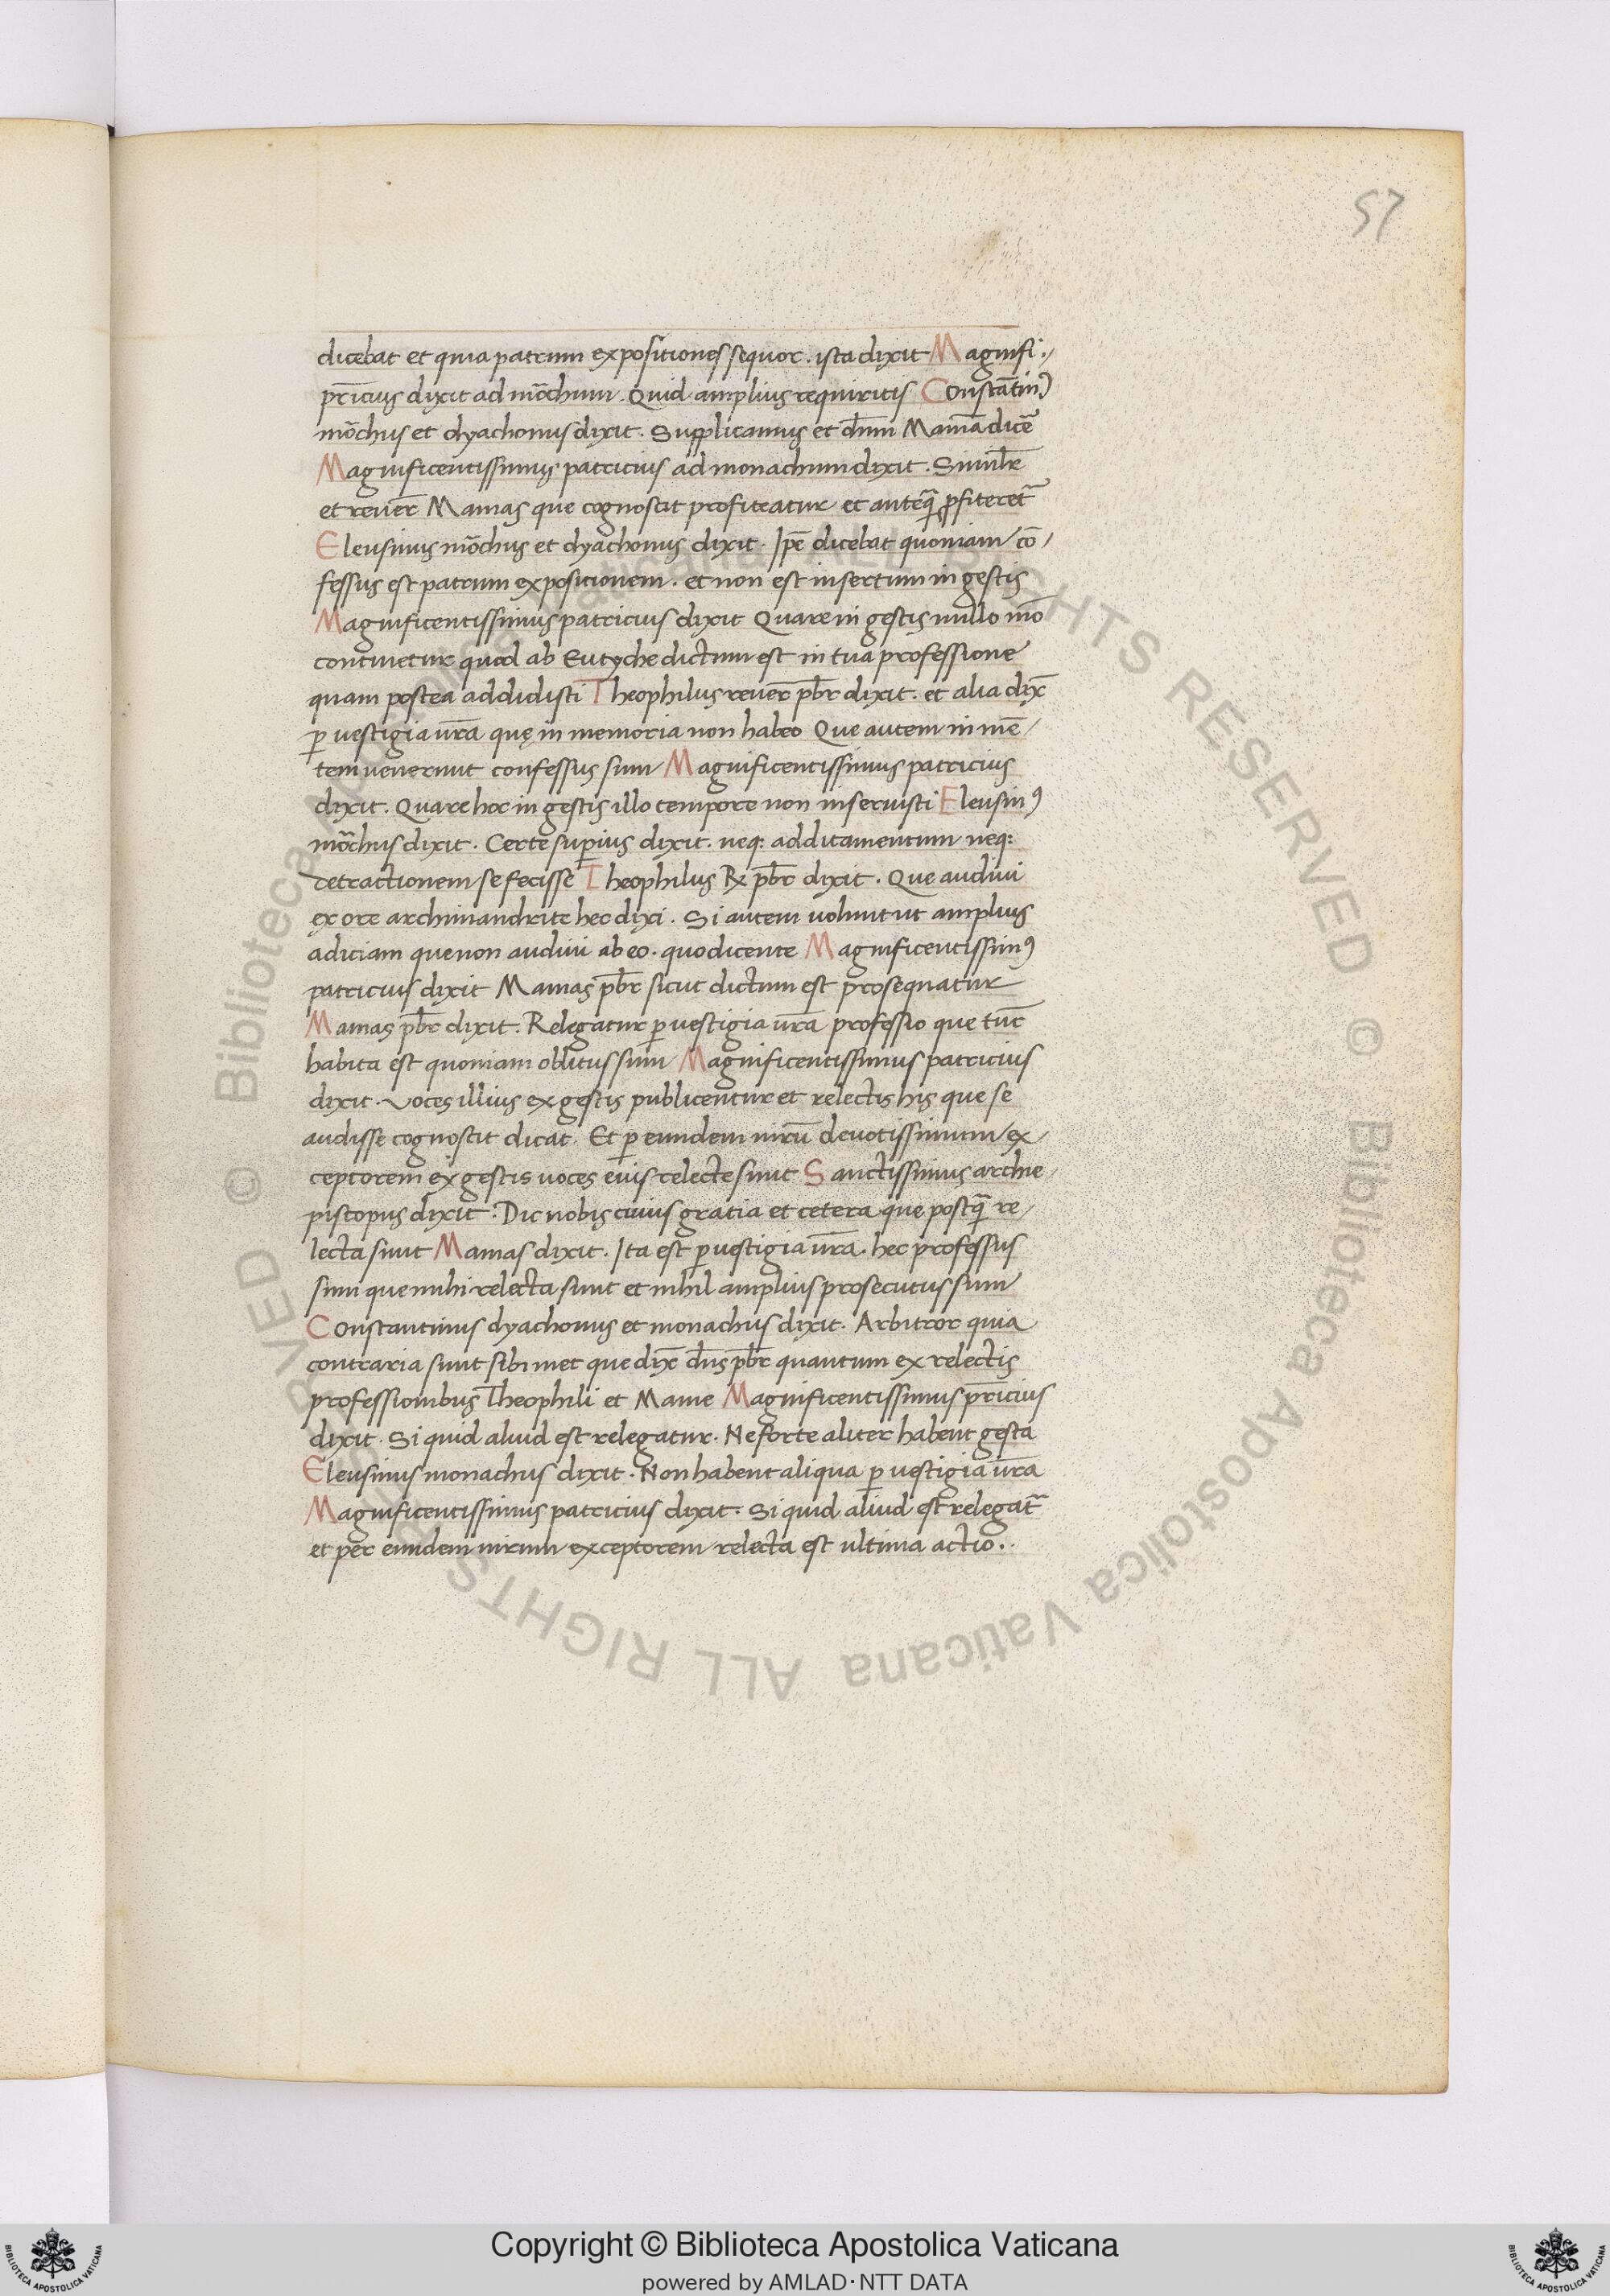 57
dicebat et quia patrum expositiones sequor. ista dixit Magnifi./
pr̄icius dixit ad mōchum. Quid amplius requiritis Constātinꝰ
mōchus et dyachonus dixit. Supplicamus et dn̄m Mamā dicē
Magnificentissimus patricius ad monachum dixit. Similr̄
et reuer̄ Mamas que cognoscit profiteatur et anteq̄ ꝓfiteret̄
Eleusinus mōchus et dyachonus dixit. Ip̄e dicebat quoniam cō/
fessus est patrum expositionem. et non est insertum in gestis
Magnificentissimus patricius dixit Quare in gestis nullo mō
continetur quod ab Eutyche dictum est in tua professione
quam postea addidisti Theophilus reuer̄ pb̄r dixit. et alia dix̄
ꝑ uestigia ur̄a quę in memoria non habeo Que autem in mē/
tem uenerunt confessus sum Magnificentissimus patricius
dixit. Quare hoc in gestis illo tempore non inseruisti Eleusinꝰ
mōchus dixit. Certe suꝑius dixit. neq: additamentum neq:
detractionem se fecisse Theophilus R pb̄r dixit. Que audiui
ex ore archimandrite hec dixi. Si autem uolunt ut amplius
adiciam que non audiui ab eo. quo dicente Magnificentissimꝰ
patricius dixit Mamas pb̄r sicut dictum est prosequatur
Mamas pb̄r dixit. Relegatur ꝑ uestigia ur̄a professio que tūc
habita est quoniam oblitus sum Magnificentissimus patricius
dixit. Voces illius ex gestis publicentur et relectis his que se
audisse cognoscit dicat. Et ꝑ eundem uirū deuotissimum ex/
ceptorem ex gestis uoces eius relecte sunt Sanctissimus archie/
piscopus dixit. Dic nobis cuius gratia et cetera que postq̄ re/
lecta sunt Mamas dixit. Ita est ꝑ uestigia ur̄a. hec professus
sum que mihi relecta sunt et nihil amplius prosecutus sum
Constantinus dyachonus et monachus dixit. Arbitror quia
contraria sunt sibimet que dix̄ dn̄s pb̄r quantum ex relectis
professionibus Theophili et Mame Magnificentissimus pr̄icius
dixit. Si quid aliud est relegatur. Ne forte aliter habent gesta
Eleusinus monachus dixit. Non habent aliqua ꝑ uestigia ur̄a
Magnificentissimus patricius dixit. Si quid aliud est relegat̄
et per eundem uirum exceptorem relecta est ultima actio..
© Biblioteca Apostolica Vaticana ALL RIGHTS RESERVED
© Biblioteca Apostolica Vaticana ALL RIGHTS RESERVED
BIBLIOTECA APOSTOLICA VATICANA
Copyright © Biblioteca Apostolica Vaticana
powered by AMLAD·NTT DATA
BIBLIOTECA APOSTOLICA VATICANA